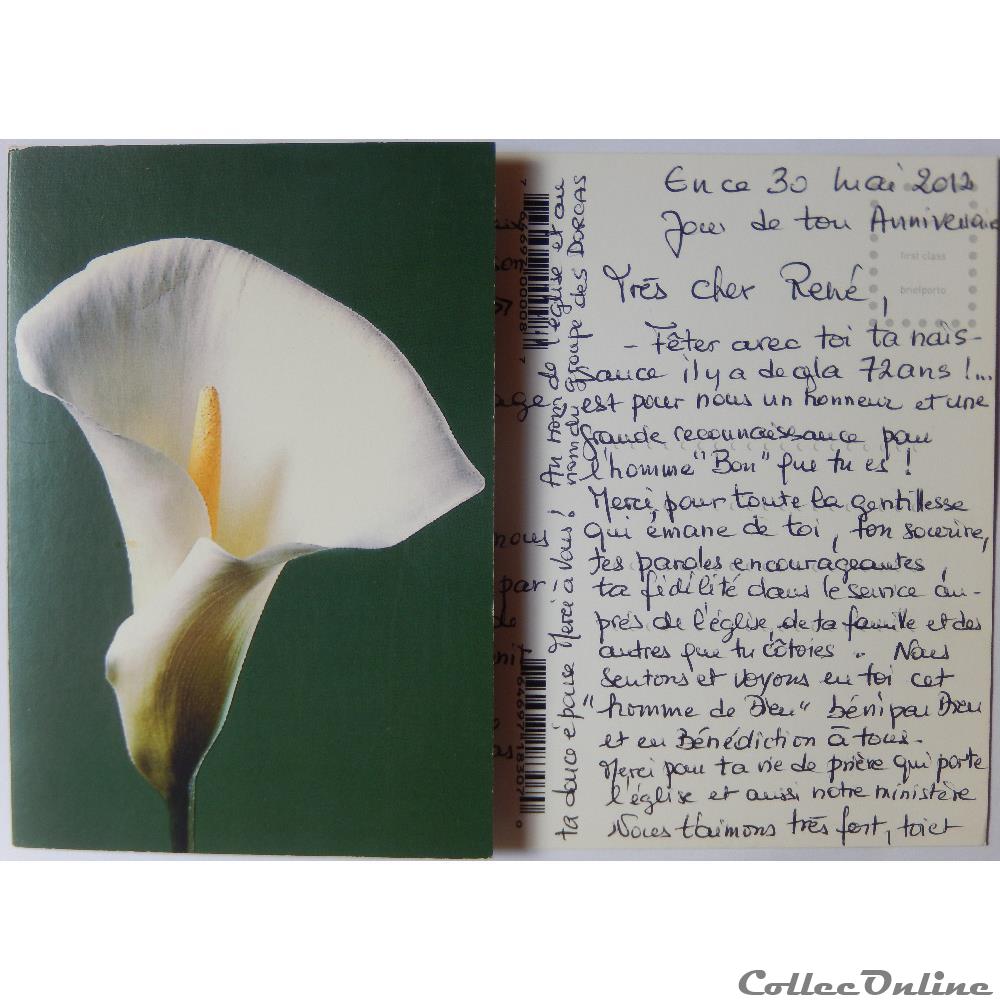 En ce 30 Mai 2012
Jour de ton Anniversaire
first class
brielporto
Très cher René,
- Fêter avec toi ta nais-
sance il y a de cela 72 ans !...
est pour nous un honneur et une
grande reconnaissance pour
l'homme "Bon" que tu es !
Merci, pour toute la gentillesse
qui émane de toi, ton sourire,
tes paroles encourageantes,
ta fidélité dans le service au-
près de l'église, de ta famille et des
autres que tu côtoies. Nous
sentons et voyons en toi cet
"homme de Dieu" béni par Dieu
et en Bénédiction à tous.
Merci pour ta vie de prière qui porte
l'église et aussi notre ministère
Nous t'aimons très fort, toi et
ta douce épouse Merci à vous ! Au nom de l'église et au
nom du groupe des DORCAS
age
nous
par
CollecOnline